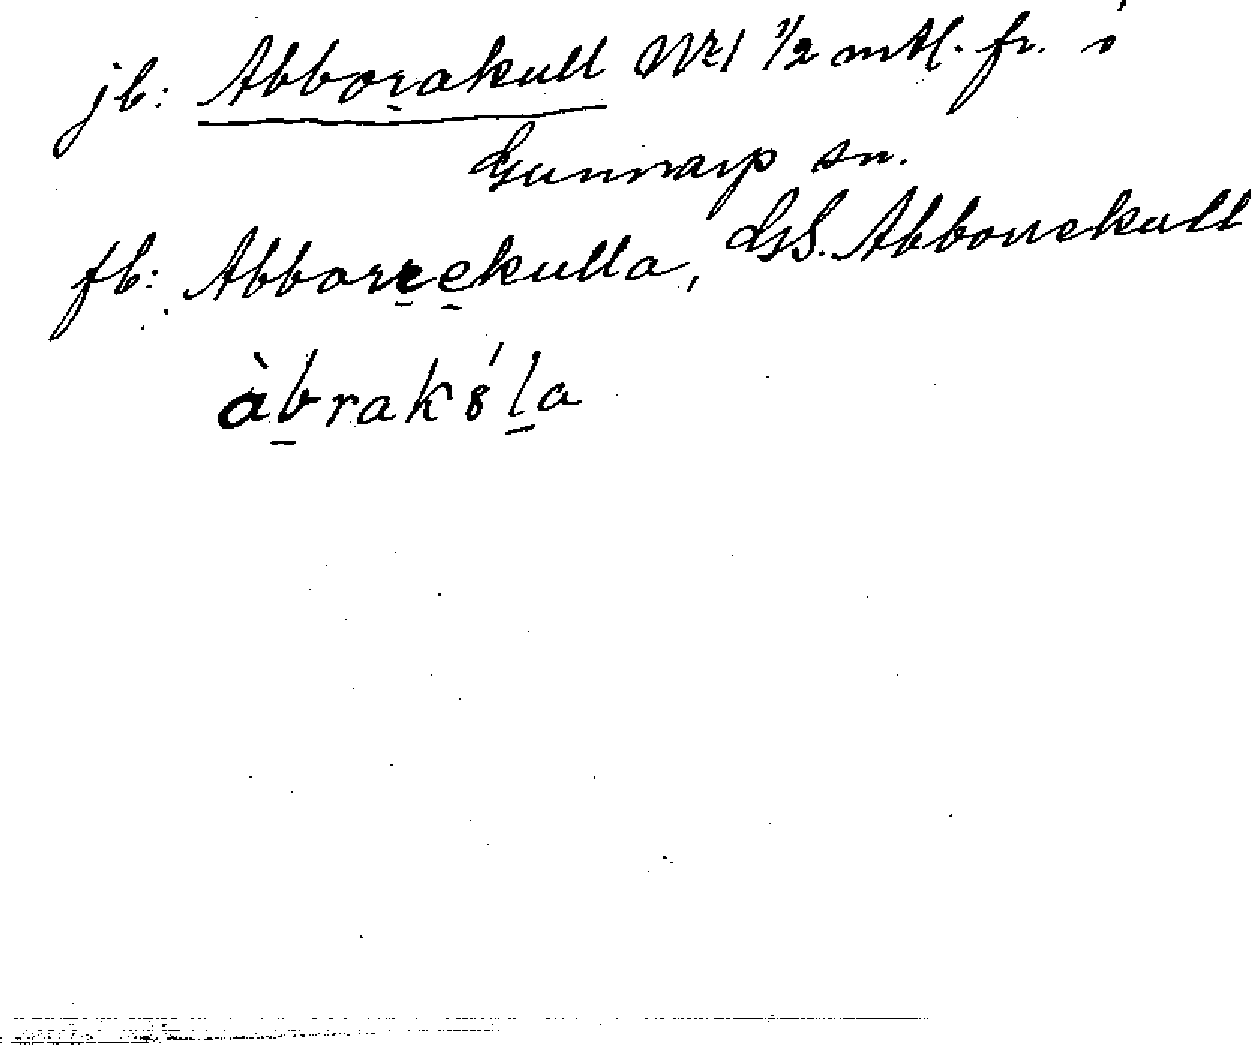 jb: Abborakull No 1 1/2 mtl. fr. i
Gunnarp sn.
fb: Abborrekulla, GS. Abborrekull
àbrakúla